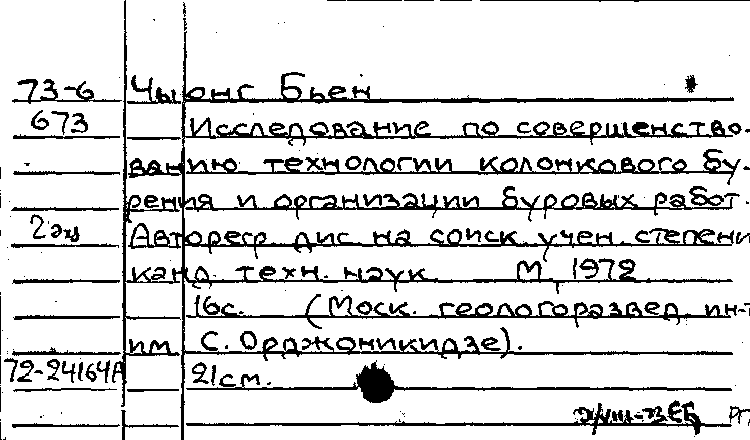 73-6 Чыонг Бьен
673 Исследование по совершенство-
ванию технологии колонкового бу-
рения и организации буровых работ.
2 экз Автореф. дис. на соиск. учен. степени
канд. техн. наук. М., 1972.
16с. (Моск. геологоразвед. ин-т
им. С. Орджоникидзе).
72-24164А 21см.